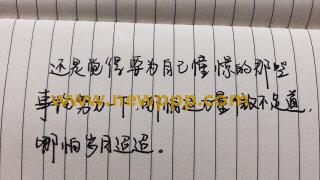 还是觉得要为自己憧憬的那些
事物努力一下,哪怕这憧憬微不足道,
哪怕岁月迢迢。
www.newppp.com